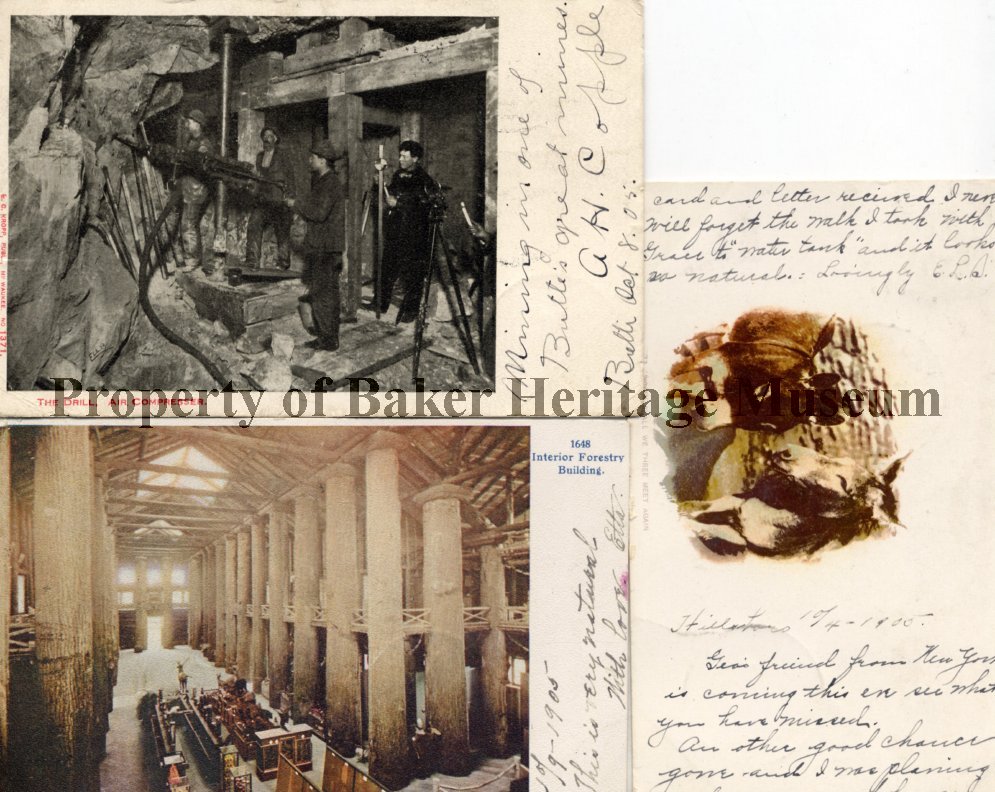 Mining in one of
Butte's great mines.
A H. C
Butte Oct 8 05.
E. C. KROPP, PUBL., MILWAUKEE, NO 1371.
THE DRILL, AIR COMPRESSER.
card and letter recieved, I never
will forget the walk I took with
Grace to "water tank" and it looks
so natural.: Lovingly E.L.S.
Property of Baker Heritage Museum
WE THREE MEET AGAIN
1648
Interior Forestry
Building.
9-1905
This is very natural
With love Etta.
10/4-1905.
Geo's friend from New York
is coming this eve see what
you have missed.
An other good chance
gone and I was planing